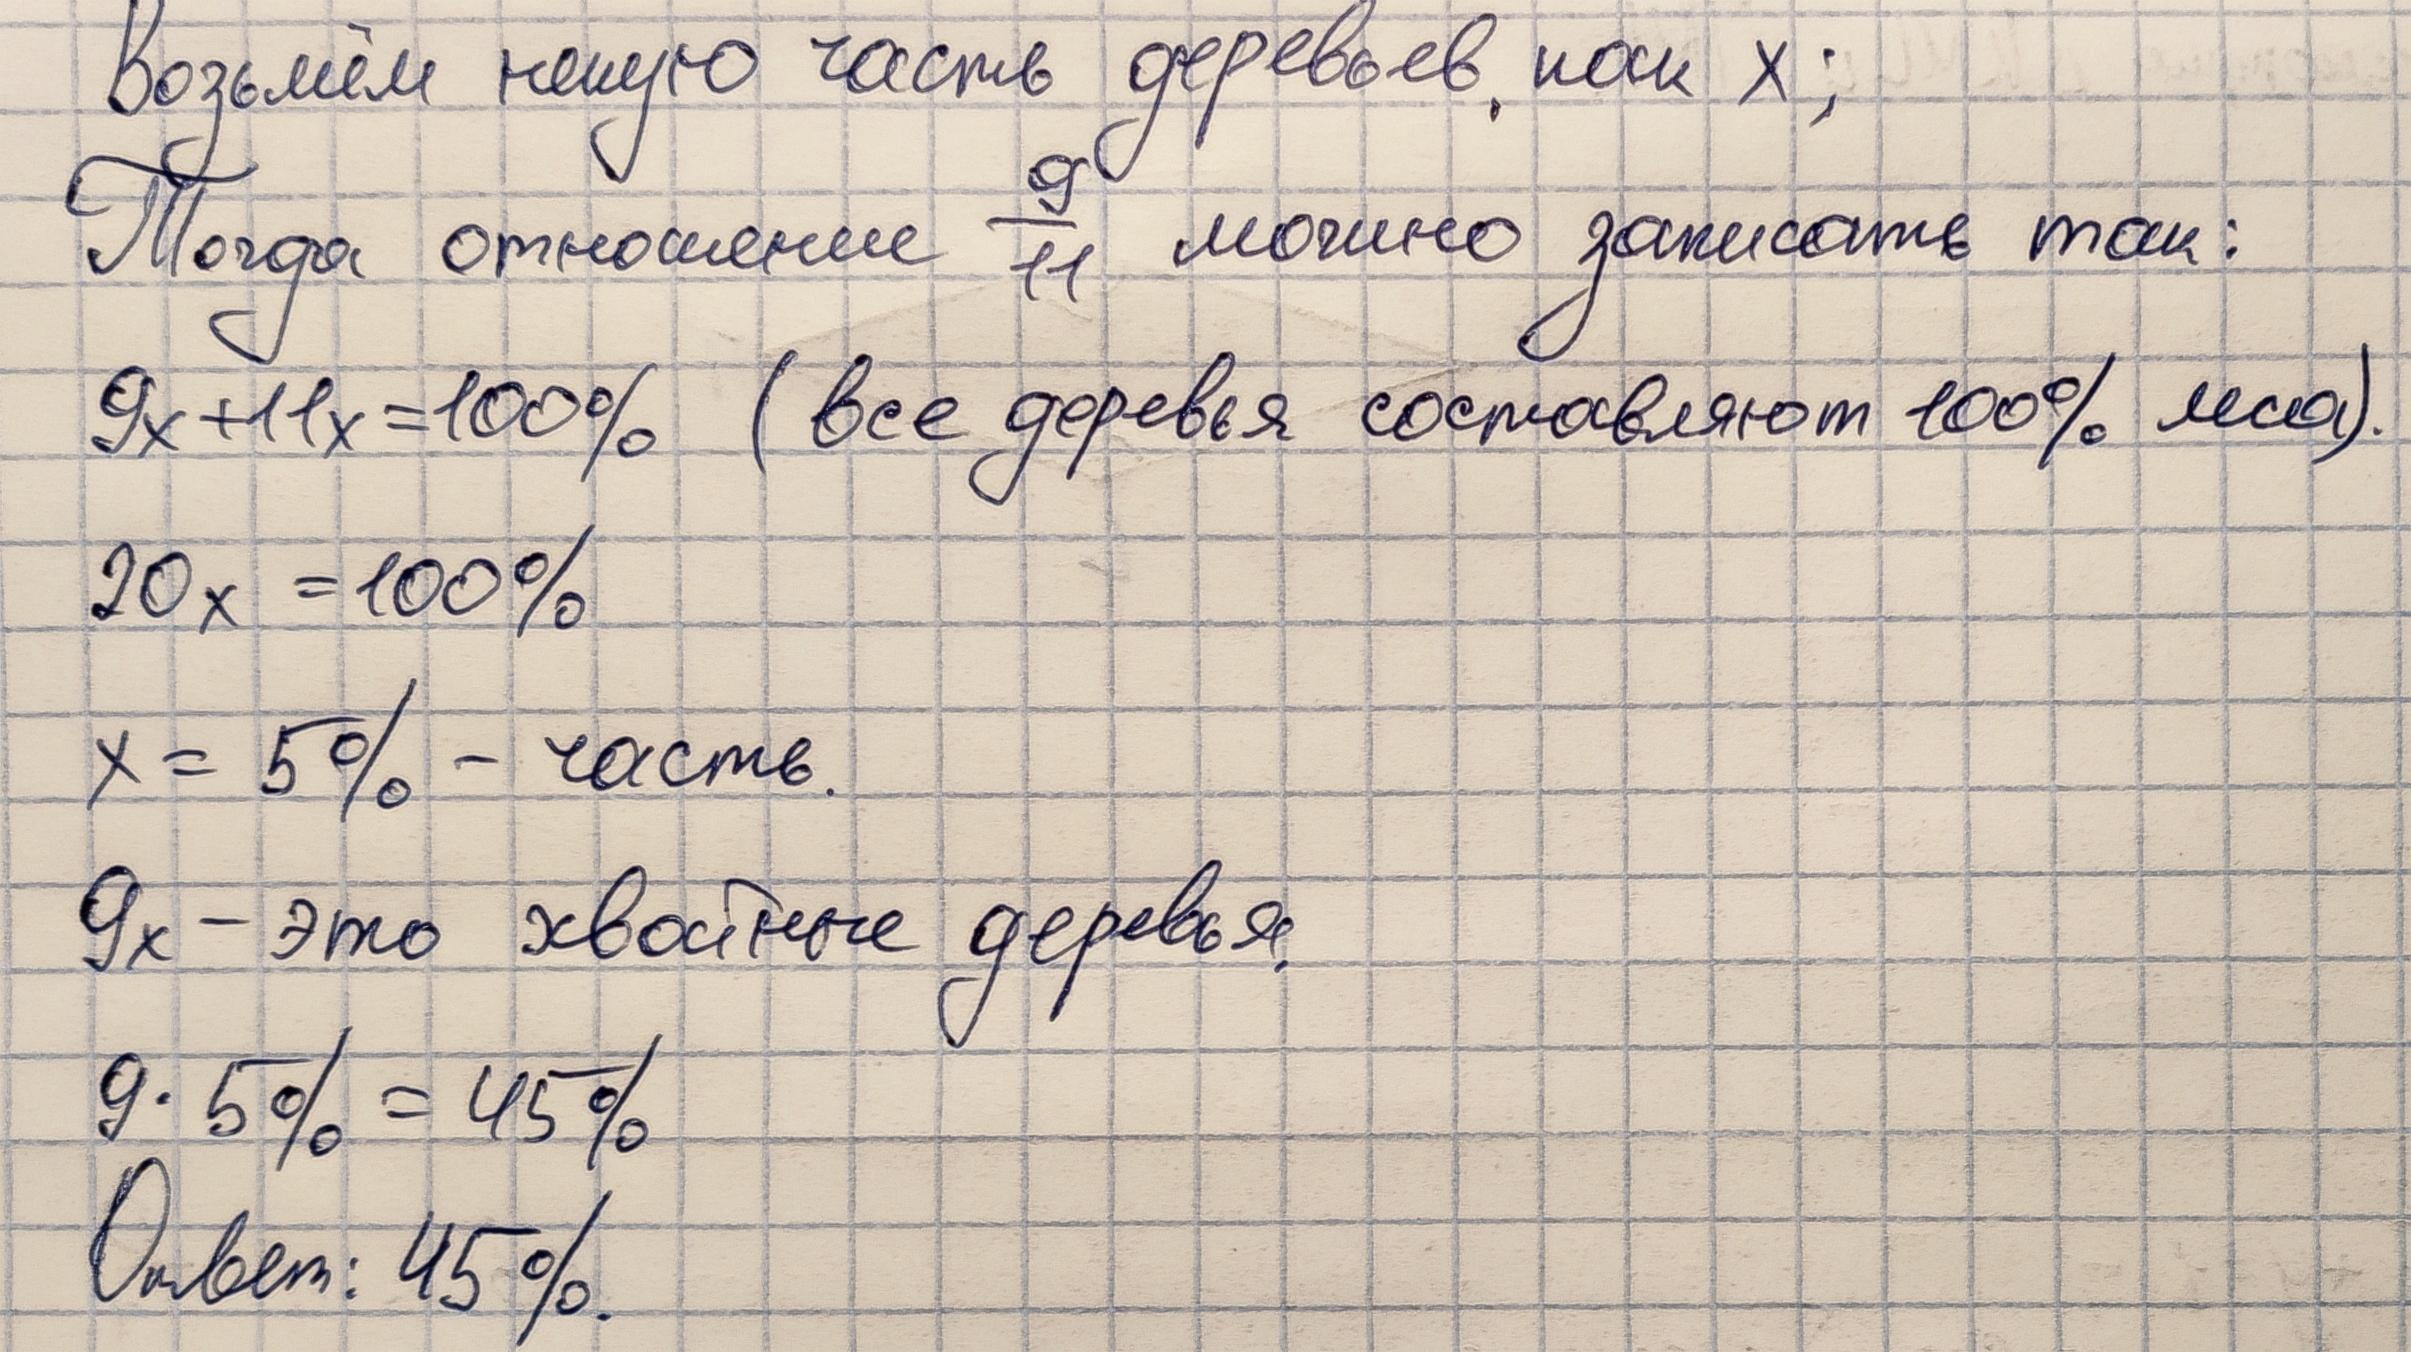 Возьмём некую часть деревьев, как x;
Тогда отношение 9/11 можно записать так:
9x+11x=100% (все деревья составляют 100% леса).
20x =100%
x = 5% - часть.
9x - это хвойные деревья.
9·5% = 45%
Ответ: 45%.